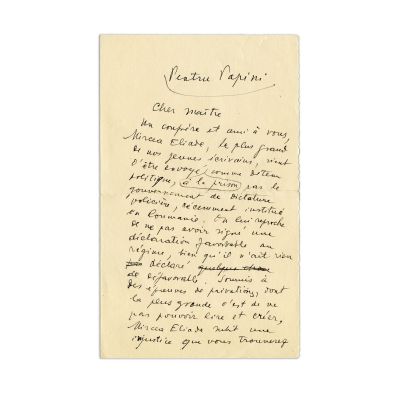 Pentru Papini
Cher maître
Un confrère et ami à vous,
Mircea Eliade, le plus grand
de nos jeunes écrivains, vient
d'être envoyé comme détenu
politique, à la prison par le
gouvernement de dictature
policière, récemment institué
en Roumanie. On lui reproche
de ne pas avoir signé une
déclaration favorable au
régime, bien qu'il n'ait rien
déclaré quelque chose
de défavorable. Soumis à
des épreuves de privations, dont
la plus grande c'est de ne
pas pouvoir lire et créer,
Mircea Eliade subit une
injustice que vous trouverez